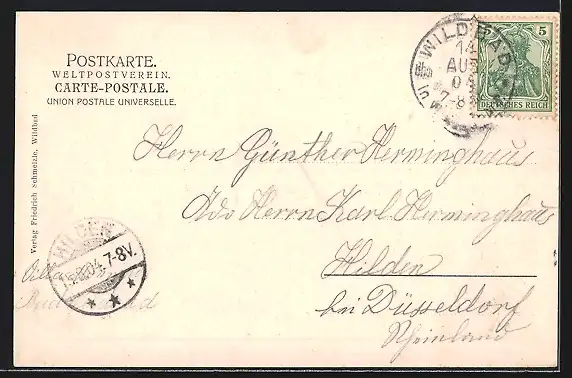 POSTKARTE.
WELTPOSTVEREIN.
CARTE-POSTALE.
UNION POSTALE UNIVERSELLE.
WILDBAD
14
AUG
7-8
5
DEUTSCHES REICH
Herrn Günther Herminghaus
Adr Herrn Karl Herminghaus
Hilden
bei Düsseldorf
Rheinland
HILDEN
7-8V.
Villa
Verlag Friedrich Schmelzle, Wildbad